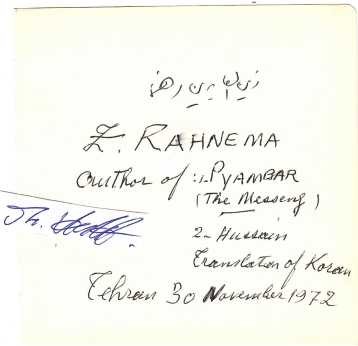 Z. RAHNEMA
author of :1- PYAMBAR
(The Messeng)
2- Hussain
Translation of Koran
Tehran 30 November 1972